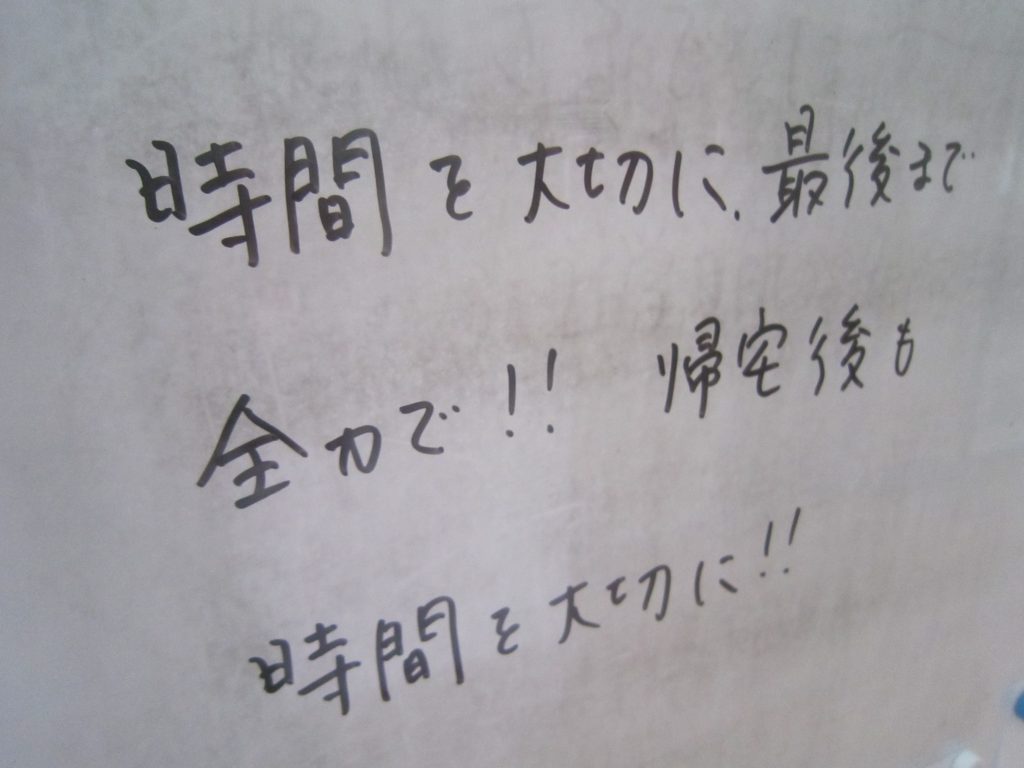 時間を大切に、最後まで
全力で!! 帰宅後も
時間を大切に!!